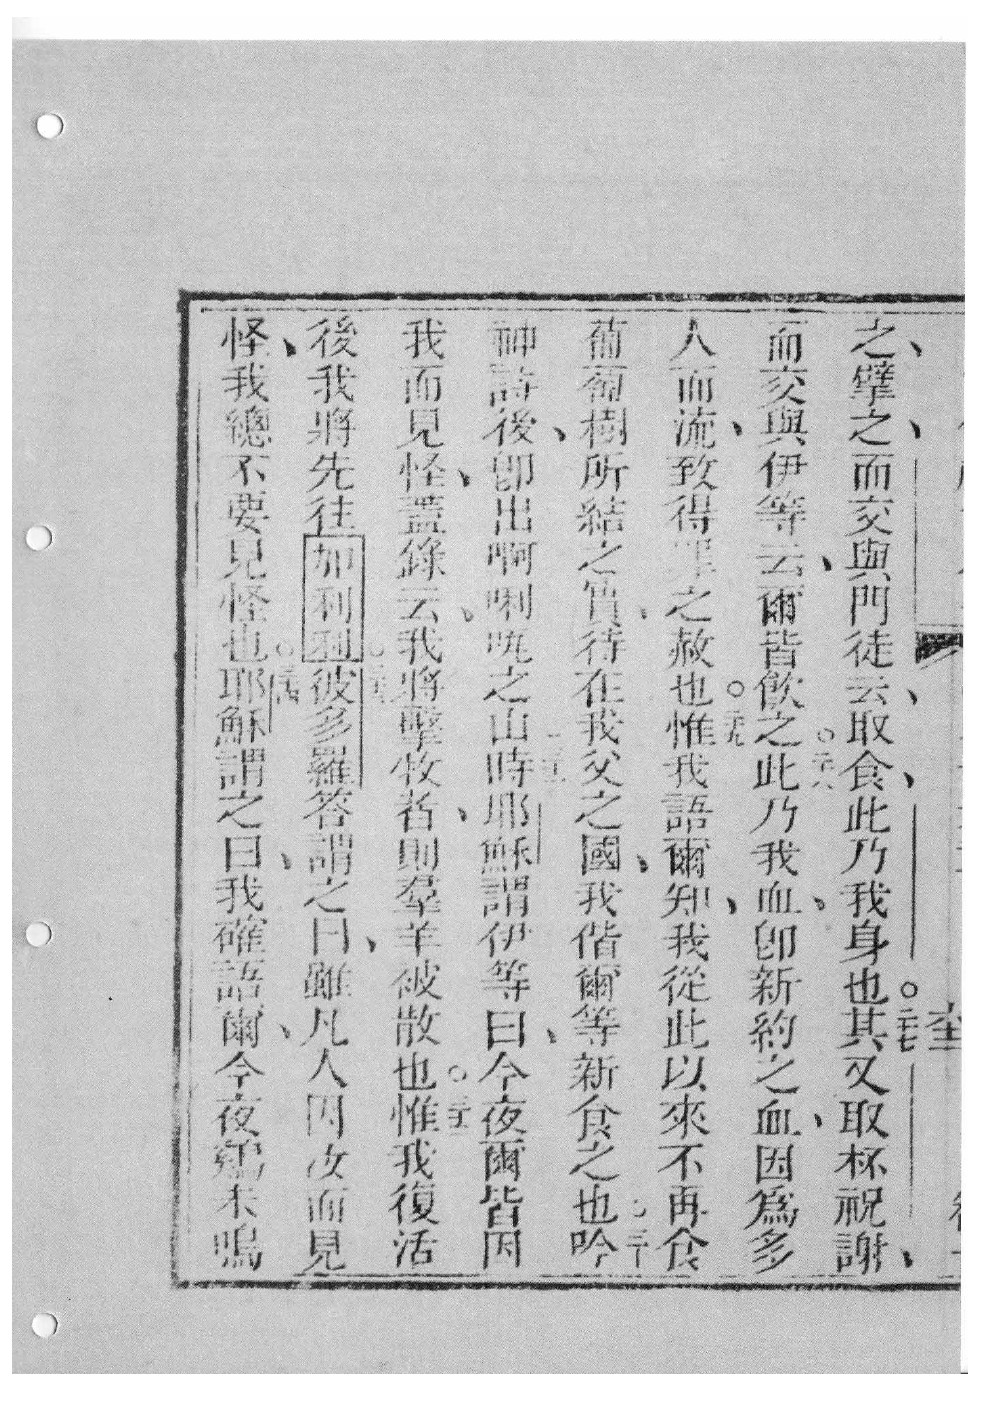 之、擘之、而交與門徒云、取食、此乃我身也。二七其又取杯祝謝、
而交與伊等云、爾皆飮之。二八此乃我血、卽新約之血、因爲多
人而流、致得罪之赦也。二九惟我語爾知、我從此以來不再食
葡萄樹所結之實、待在我父之國、我偕爾等新食之也。三十吟
神詩後、卽出啊唎㕭之山時。三一耶穌謂伊等曰、今夜爾皆因
我而見怪、蓋錄云、我將擊牧者、則羣羊被散也。三二惟我復活
後我將先往加利利。三三彼多羅答謂之曰、雖凡人因汝而見
怪、我總不要見怪也。三四耶穌謂之曰、我確語爾、今夜鷄未鳴